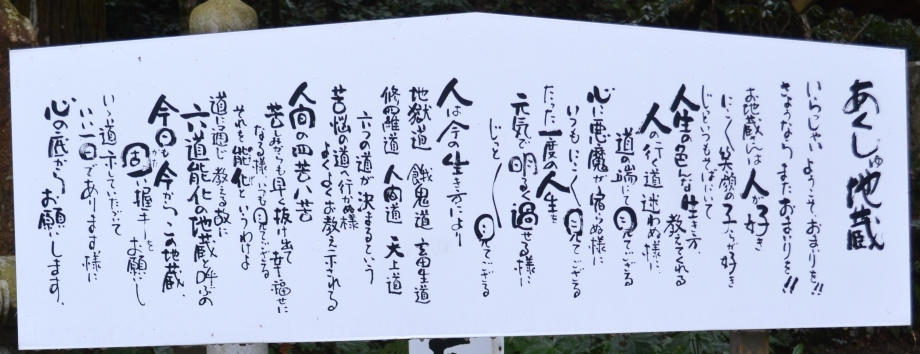 あくしゅ地蔵
いらっしゃい ようこそ、おまいりを!!
さようなら、またおまいりを!!
お地蔵さんは人が好き
にこにこ笑顔の子らが好き
じっといつもそばにいて
人生の色んな生き方、
教えてくれる
人の行く道 迷わぬ様に、
道の端にて見てござる
心に悪魔が宿らぬ様に
いつもにこにこ見てござる
たった一度の人生を
元気で明るく過せる様に
じっと見てござる
人は今の生き方により
地獄道 餓鬼道 畜生道
修羅道 人間道 天上道
六つの道が決まるという
苦悩の道へ行かぬ様
よくよくお教え示される
人間の四苦八苦
苦しみからも早く抜け出て幸福せに
なる様いつも見てござる
それを能化というわけよ
道に通じ教える故に
六道能化の地蔵と呼ぶの
今日も今から、この地蔵、
固い握手をお願いし
いい道を示していただいて
いい一日であります様に
心の底からお願いします。